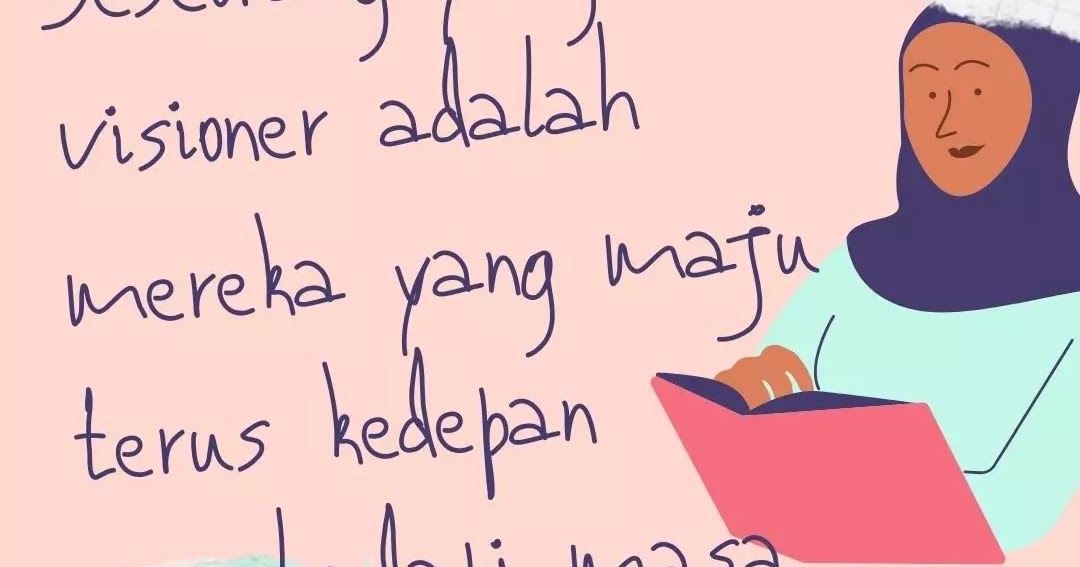 seseorang yang
visioner adalah
mereka yang maju
terus kedepan
masa